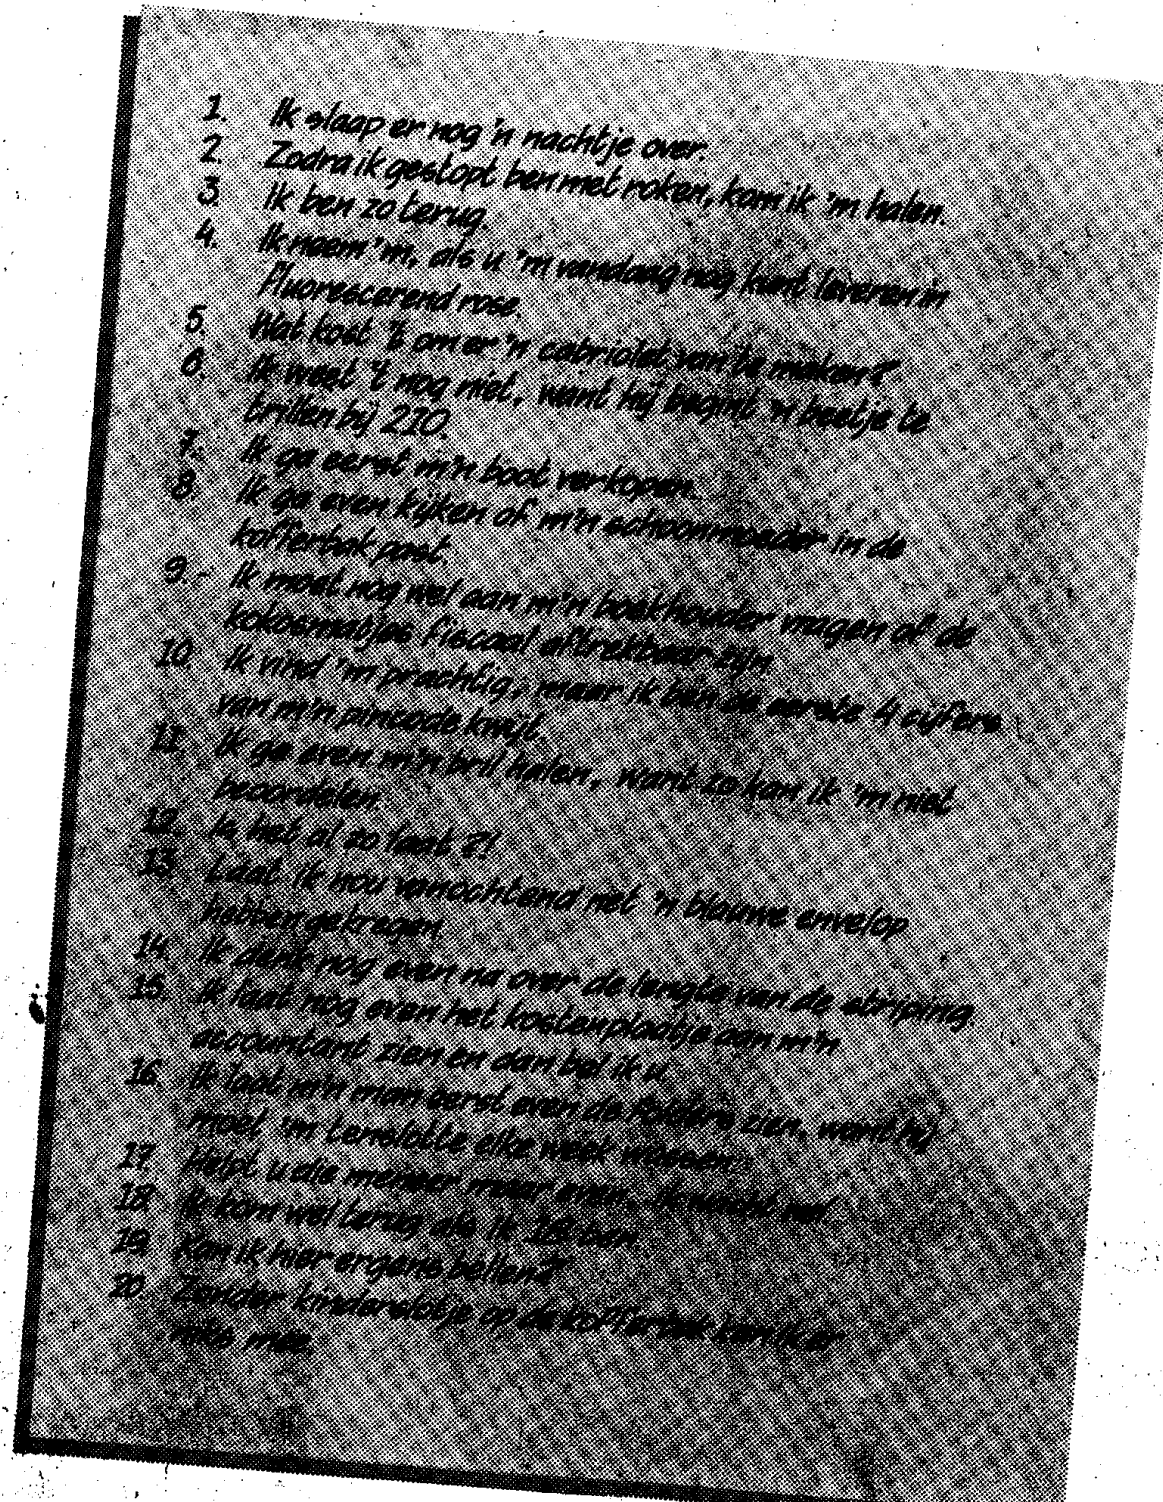 1. Ik slaap er nog 'n nachtje over.
2. Zodra ik gestopt ben met roken, kom ik 'm halen.
3. Ik ben zo terug.
4. Ik neem 'm, als u 'm vandaag nog kunt leveren in
fluorescerend rose.
5. Wat kost 't om er 'n cabriolet van te maken?
6. Ik weet 't nog niet, want hij begint 'n beetje te
trillen bij 210.
7. Ik ga eerst m'n boot verkopen.
8. Ik ga even kijken of m'n schoonmoeder in de
kofferbak past.
9. Ik moet nog wel aan m'n boekhouder vragen of de
kokosmatjes fiscaal aftrekbaar zijn.
10. Ik vind 'm prachtig, maar ik ben de eerste 4 cijfers
van m'n pincode kwijt.
11. Ik ga even m'n bril halen, want zo kan ik 'm niet
beoordelen.
12. Is het al zo laat?!
13. Laat ik nou vanochtend net 'n blauwe envelop
hebben gekregen.
14. Ik denk nog even na over de lengte van de striping.
15. Ik laat nog even het kostenplaatje aan m'n
accountant zien en dan bel ik u.
16. Ik laat m'n man eerst even de folders zien, want hij
moet 'm tenslotte elke week wassen.
17. Helpt u die meneer maar even, ik wacht wel.
18. Ik kom wel terug als ik 18 ben.
19. Kan ik hier ergens bellen?
20. Zonder kinderslotje op de kofferbak kan ik er
niks mee.